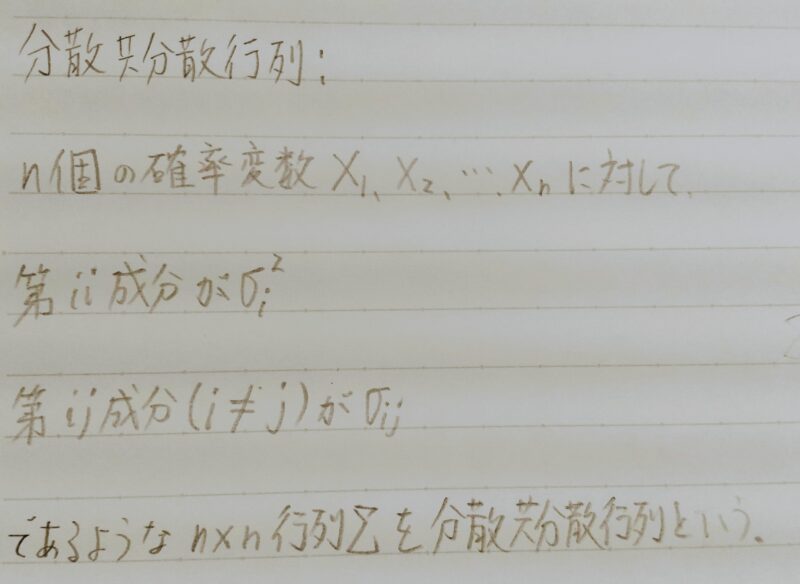 分散共分散行列:
n個の確率変数 X₁、X₂、…、Xₙ に対して、
第 ii 成分が σᵢ²
第 ij 成分 (i ≠ j) が σᵢⱼ
であるような n×n 行列Σを分散共分散行列という。